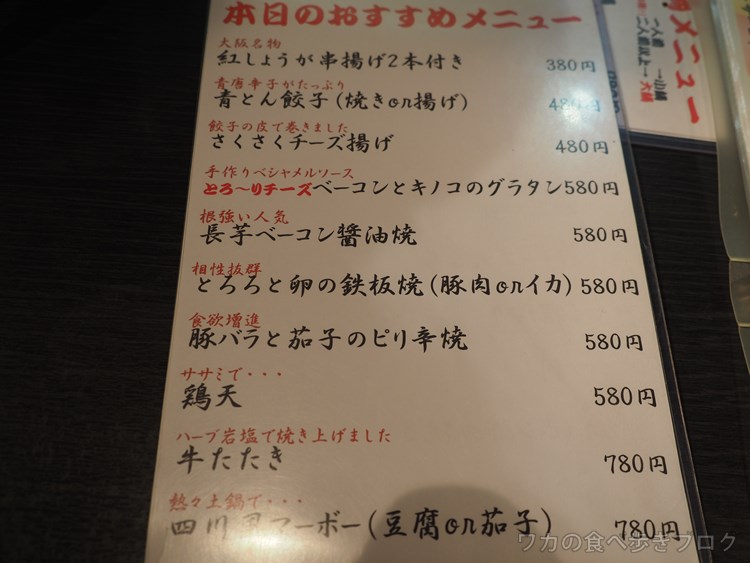 本日のおすすめメニュー
大阪名物
紅しょうが串揚げ2本付き 380円
青唐辛子がたっぷり
青とん餃子(焼きor揚げ) 480円
餃子の皮で巻きました
さくさくチーズ揚げ 480円
手作りベシャメルソース
とろ~りチーズベーコンとキノコのグラタン580円
根強い人気
長芋ベーコン醤油焼 580円
相性抜群
とろろと卵の鉄板焼(豚肉orイカ) 580円
食欲増進
豚バラと茄子のピリ辛焼 580円
ササミで・・・
鶏天 580円
ハーブ岩塩で焼き上げました
牛たたき 780円
熱々土鍋で・・・
四川風マーボー(豆腐or茄子) 780円
メニュー
一人前 →小鍋
二人前以上→大鍋
ワカの食べ歩きブログ